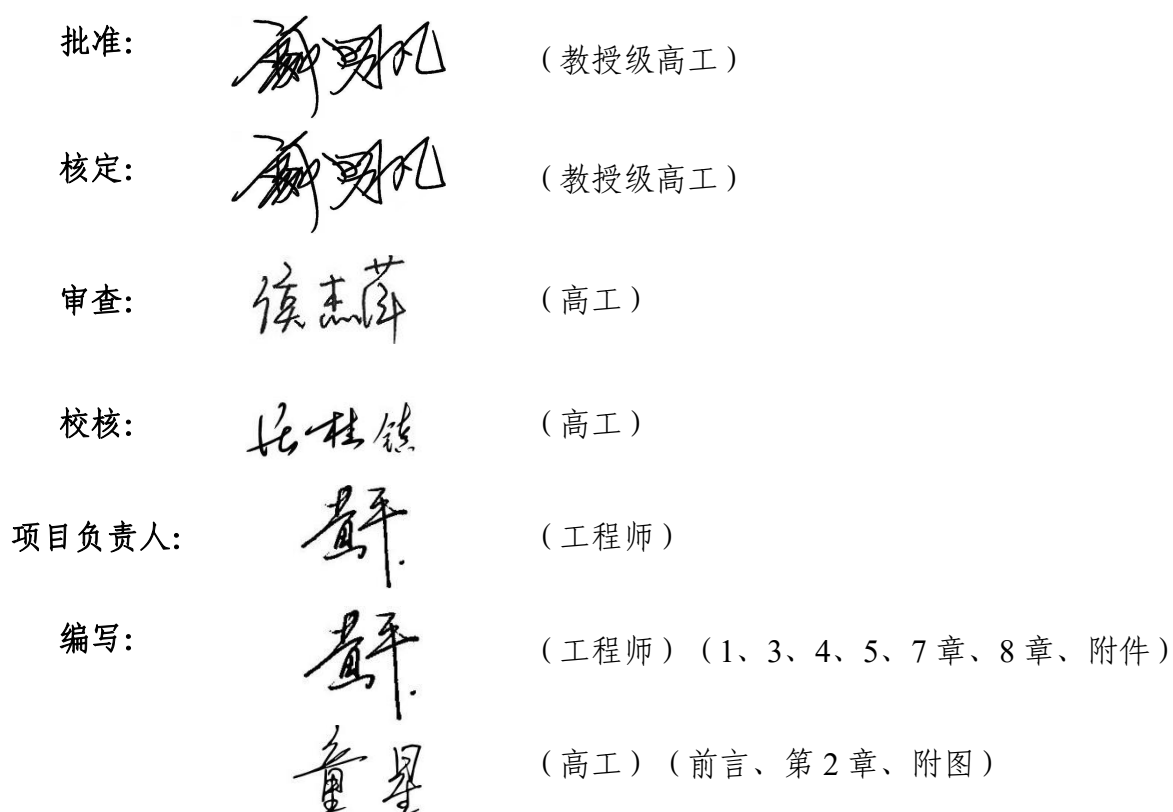 批准: (教授级高工)
核定: (教授级高工)
审查: 侯杰萍 (高工)
校核: 桂镇 (高工)
项目负责人: (工程师)
编写: (工程师)(1、3、4、5、7章、8章、附件)
童星 (高工)(前言、第2章、附图)